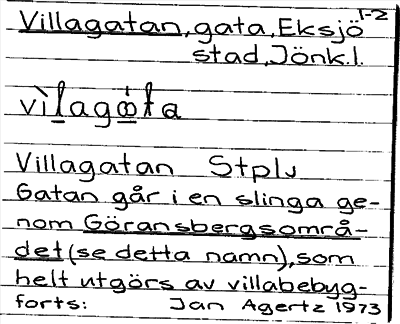 1-2
Villagatan, gata, Eksjö
stad, Jönk.l.
vìlagǻta
Villagatan Stplv
Gatan går i en slinga ge-
nom Göransbergsområ-
det (se detta namn), som
helt utgörs av villabebyg-
forts: Jan Agertz 1973